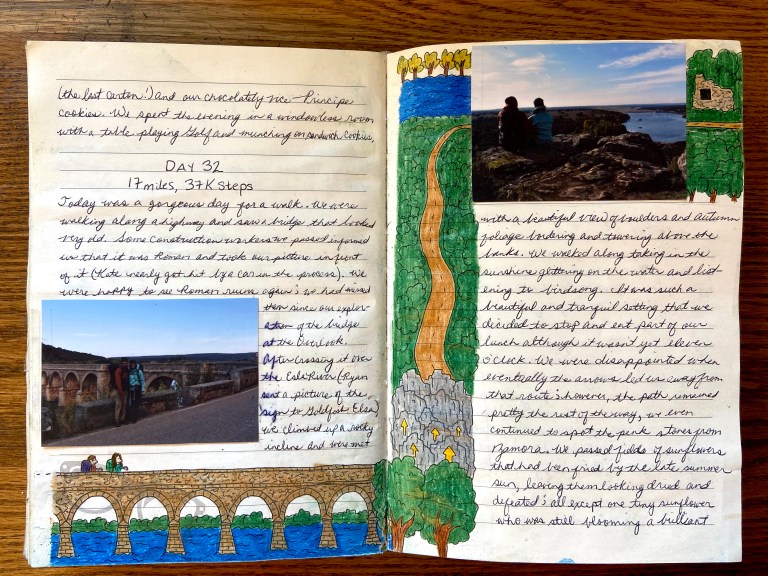 (the last carton!) and our chocolatey rice Principe
cookies. We spent the evening in a windowless room
with a table playing Golf and munching on sandwich cookies.
DAY 32
17 miles, 37K steps
Today was a gorgeous day for a walk. We were
walking along a highway and saw a bridge that looked
very old. Some construction workers we passed informed
us that it was Roman and took our picture in front
of it (Kate nearly got hit by a car in the process). We
were happy to see Roman ruins again; we had missed
them since our explor-
ation of the bridge
at the Overlook.
After crossing it over
the Esla River (Ryan
sent a picture of the
sign to Goldfish Elsa)
we climbed up a rocky
incline and were met
with a beautiful view of boulders and autumn
foliage bordering and towering above the
banks. We walked along taking in the
sunshine glittering on the water and list-
ening to birdsong. It was such a
beautiful and tranquil setting that we
decided to stop and eat part of our
lunch although it wasn't yet eleven
o'clock. We were disappointed when
eventually the arrows led us away from
that route; however, the path remained
pretty the rest of the way, we even
continued to spot the pink stones from
Zamora. We passed fields of sunflowers
that had been fried by the late summer
sun, leaving them looking dried and
defeated; all except one tiny sunflower
who was still blooming a brilliant